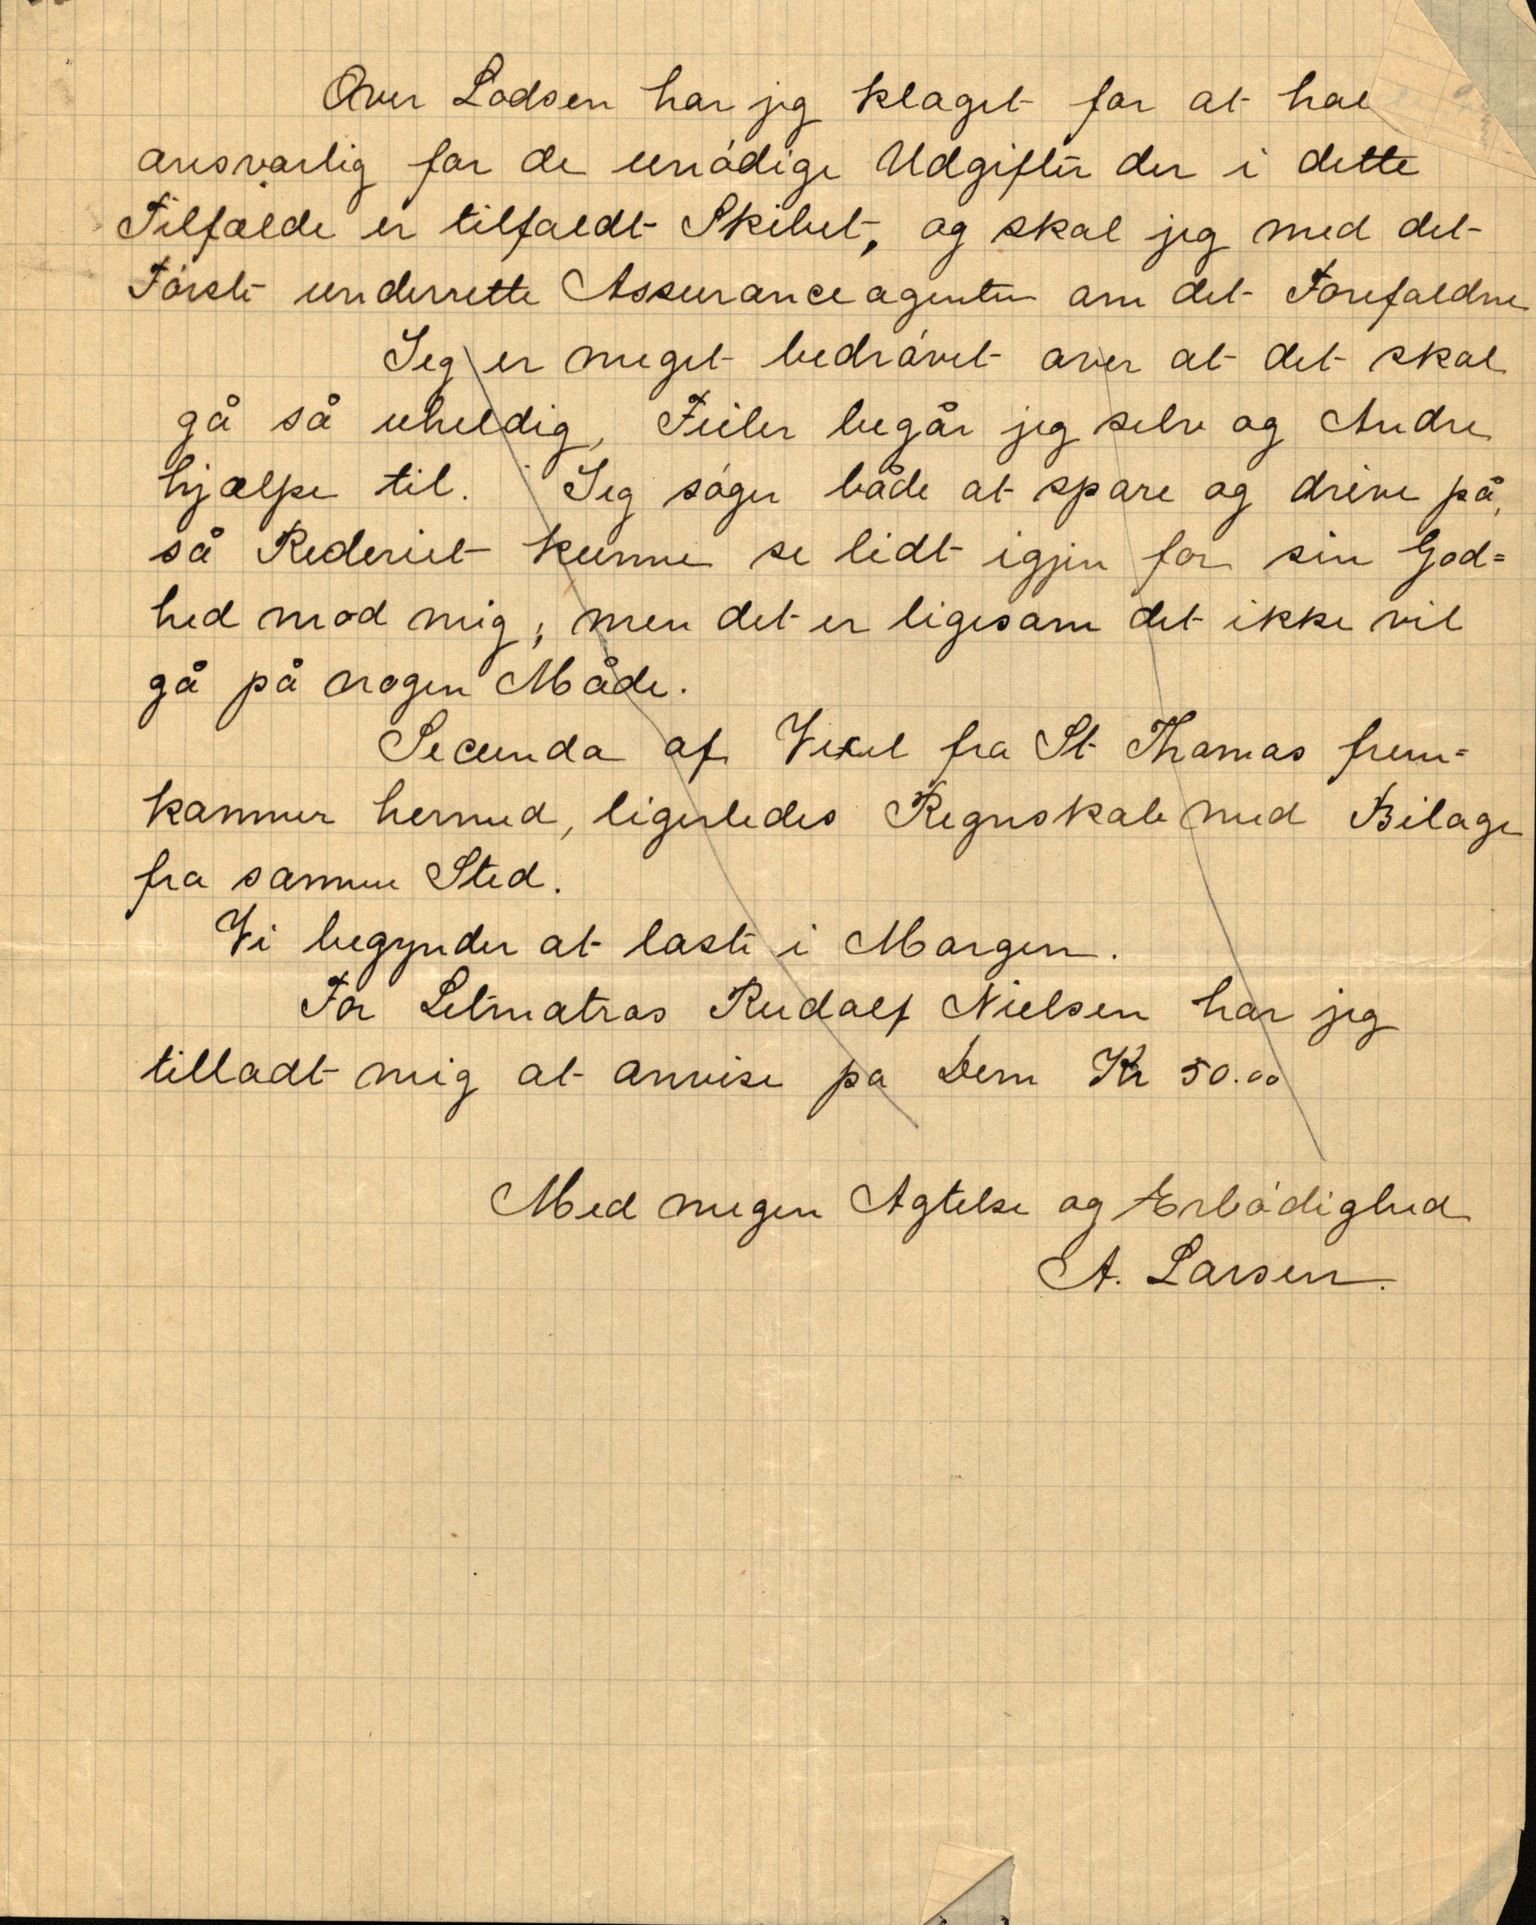 Over Lodsen har jeg klaget for at hol
ansvarlig for de unödige Udgifter der i dette
Tilfælde er tilfaldt Skibet, og skal jeg med det
Förste underrette Assuranceagenten om det Forefaldne
Jeg er meget bedrövet over at det skal
gå så uheldig, Feiler begår jeg selv og Andre
hjælpe til. Jeg söger både at spare og drive på,
så Rederiet kunne se lidt igjen for sin God=
hed mod mig, men det er ligesom det ikke vil
gå på nogen Måde.
Secunda af Vexel fra St Thomas frem=
kommer hermed, ligeledes Regnskab med Bilage
fra samme Sted.
Vi begynder at laste i Morgen.
For Letmatros Rudolf Nielsen har jeg
tilladt mig at anvise pa Dem Kr 50.00
Med megen Agtelse og Ærbödighed
A. Larsen.